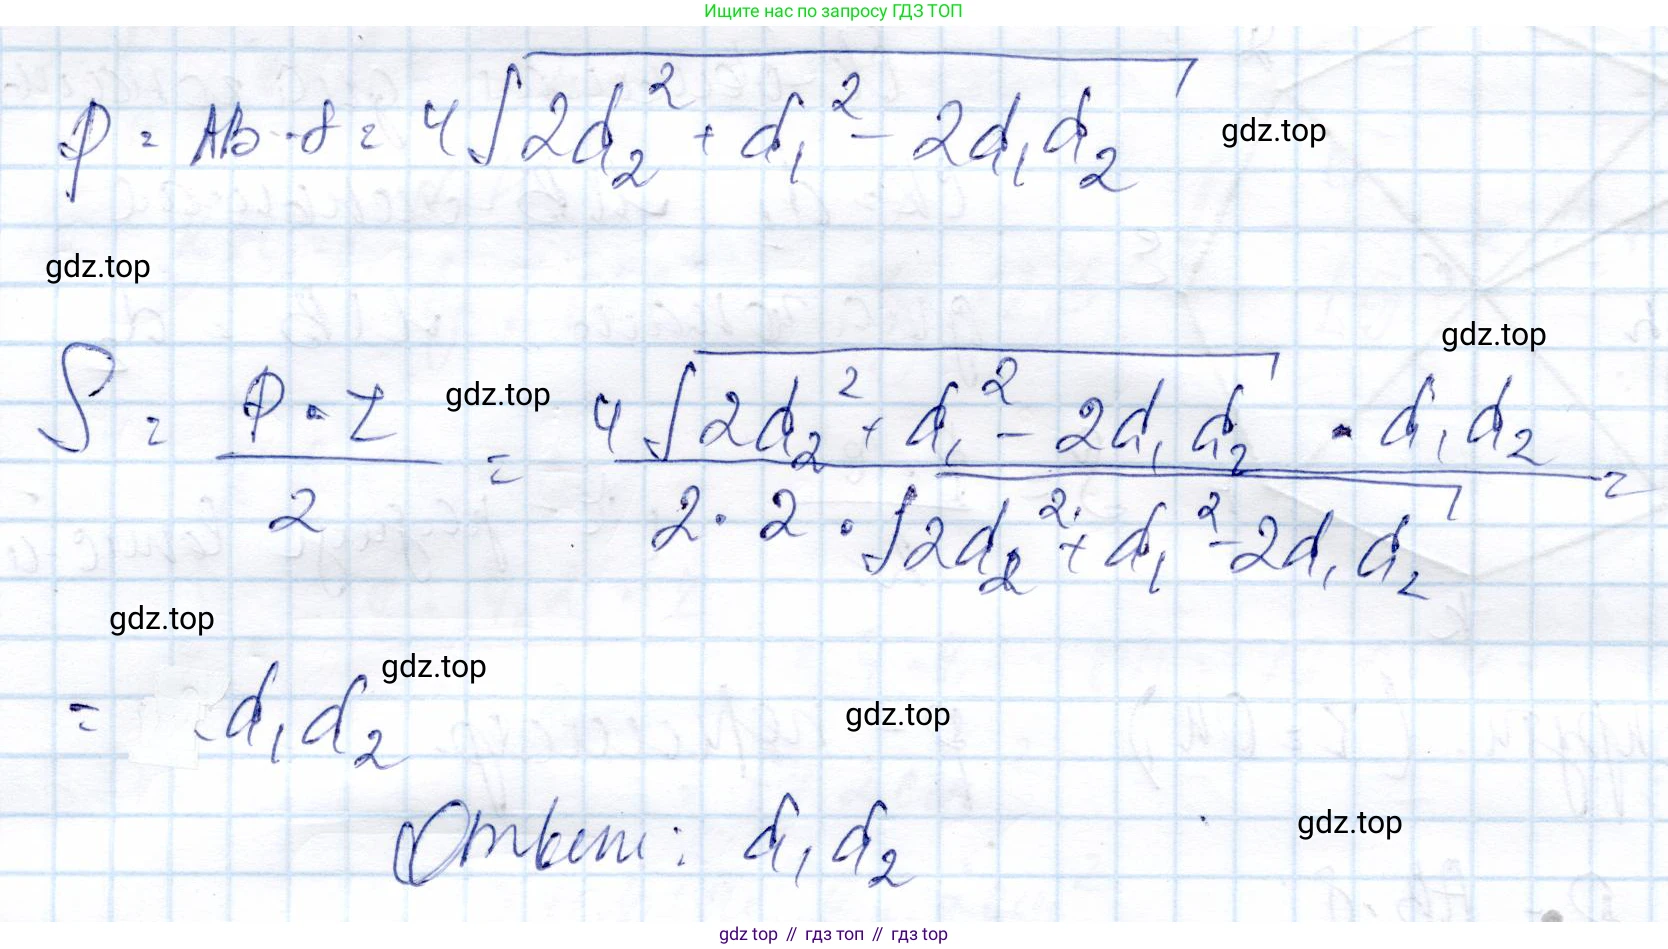 Ищите нас по запросу ГДЗ ТОП
P = AB · 8 = 4√(2d₂² + d₁² - 2d₁d₂)
gdz.top
gdz.top
gdz.top
S = (P · r)/2 = (4√(2d₂² + d₁² - 2d₁d₂) · d₁d₂)/(2 · 2 · √(2d₂² + d₁² - 2d₁d₂)) =
gdz.top
gdz.top
= d₁d₂
gdz.top
gdz.top
Ответ: d₁d₂
gdz.top
gdz top // гдз топ // gdz top